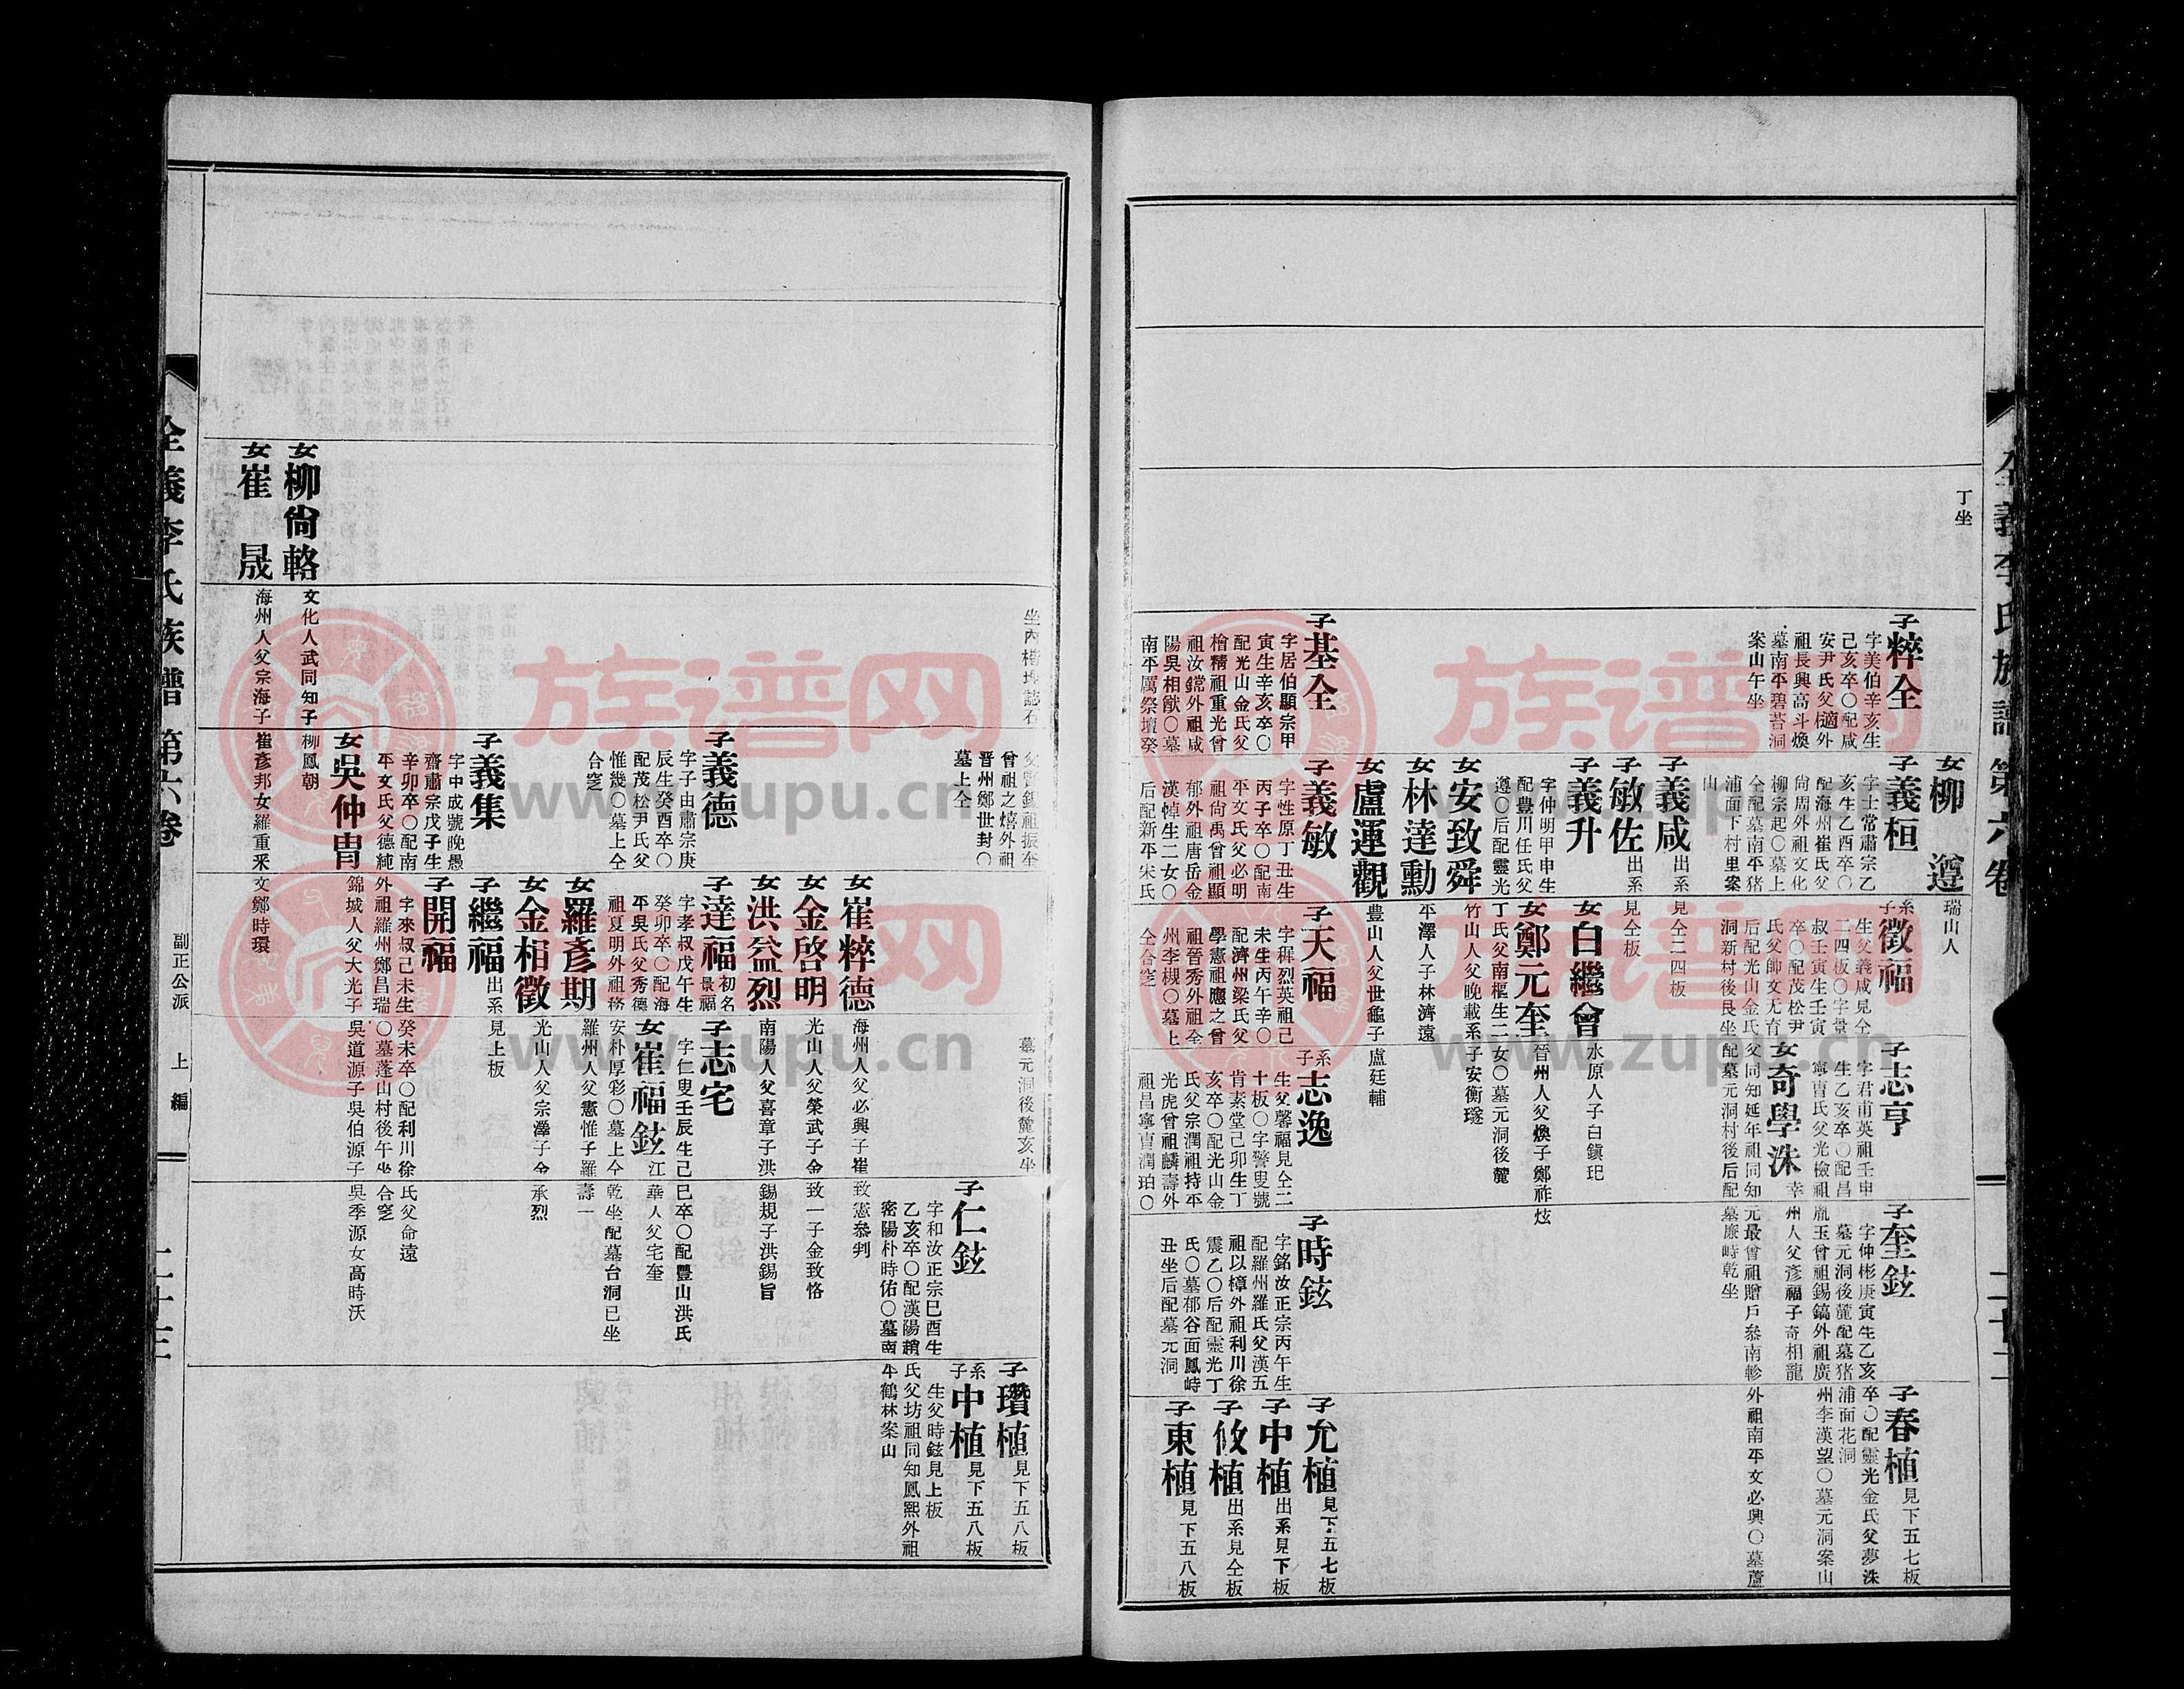 丁坐
子粹仝
字美伯辛亥生
己亥卒〇配咸
安尹氏父適外
祖長興高斗煥
墓南平碧苔洞
案山午坐
子基仝
字居伯顯宗甲
寅生辛亥卒〇
配光山金氏父
檜精祖重光曾
祖汝鏛外祖咸
陽吳相猷〇墓
南平厲祭壇癸
女柳遵
瑞山人
子義桓
字士常肅宗乙
亥生乙酉卒〇
配海州崔氏父
尙周外祖文化
柳宗起〇墓上
仝配墓南平猪
浦面下村里案
山
子義咸出系
見仝二四板
子敏佐出系
見仝板
子義升
字仲明甲申生
配豊川任氏父
遵〇后配靈光
丁氏父南樞生二
女〇墓元洞後麓
女安致舜
竹山人父晚載系
子安衡璲
女林達勳
平澤人子林濟遠
女盧運觀
豊山人父世龜子
盧廷輔
子義敏
字性原丁丑生
丙子卒〇配南
平文氏父必明
祖尙禹曾祖顯
郁外祖唐岳金
漢悼生二女〇
后配新平宋氏
系子徵福
生父義咸見仝
二四板〇字景
叔壬寅生壬寅
卒〇配茂松尹
氏父師文无育
后配光山金氏
洞新村後艮坐
女白繼會
水原人子白鎭玘
女鄭元奎
晉州人父煥子鄭祚炫
子天福
字穉烈英祖己
未生丙午辛〇
配濟州梁氏父
學憲祖應之曾
祖晉秀外祖全
州李槻〇墓上
仝合窆
子志亨
字君甫英祖壬申
生乙亥卒〇配昌
寧曺氏父光檢祖
胤玉曾祖錫鎬外祖廣
州李漢望〇墓元洞案山
女奇學洙
幸州人父彥福子奇相龍
系子志逸
生父馨福見仝二
十板〇字警叟號
肯素堂己卯生丁
亥卒〇配光山金
氏父宗潤祖持平
光虎曾祖麟壽外
祖昌寧曺潤珀〇
子奎鉉
字仲彬庚寅生乙亥
卒〇配靈光金氏父夢洙
墓元洞後麓配墓猪
浦面花洞
子時鉉
字銘汝正宗丙午生
配羅州羅氏父漢五
祖以樟外祖利川徐
震乙〇后配靈光丁
氏〇墓郁谷面鳳峙
丑坐后配墓元洞
子春植見下五七板
子允植見下五七板
子中植出系見下板
子攸植出系見仝板
子東植見下五八板
仝義李氏族譜 第六卷
二十二
坐內楷埳誌石
曾祖之熺外祖
晉州鄭世封〇
墓上仝
墓元洞後麓亥坐
子仁鉉
字和汝正宗巳酉生
乙亥卒〇配漢陽趙
密陽朴時佑〇墓南
子瓚植見下五八板
系子中植見下五八板
生父時鉉見上板
氏父坊祖同知鳳熙外祖
牛鶴林案山
女崔粹德
海州人父必興子崔致憲參判
女金啓明
光山人父榮武子金致一子金致恪
女洪益烈
南陽人父喜章子洪錫規子洪錫旨
子義德
字子由肅宗庚
辰生癸酉卒〇
配茂松尹氏父
惟幾〇墓上仝
合窆
子達福初名景福
字孝叔戊午生
癸卯卒〇配海
平吳氏父秀德
祖夏明外祖務
安朴厚彩〇墓上仝
子志宅
字仁叟壬辰生己
巳卒〇配豐山洪氏
女崔福鉉
江華人父宅奎
乾坐配墓台洞巳坐
女羅彥期
羅州人父憲惟子羅壽一
女金相徵
光山人父宗澤子金承烈
子義集
字中成號晚愚
齋肅宗戊子生
辛卯卒〇配南
平文氏父德純
外祖羅州鄭昌瑞
子繼福出系
見上板
子開福
字來叔己未生
癸未卒〇配利川徐氏父命遠
〇墓蓬山村後午坐合窆
女吳仲冑
錦城人父大光子
吳道源子吳伯源子吳季源女高時沃
女柳尙輅
文化人武同知子
柳鳳朝
女崔晟
海州人父宗海子
崔彥邦女羅重釆
文鄭時環
仝義李氏族譜 第六卷
副正公派 上編
二十三